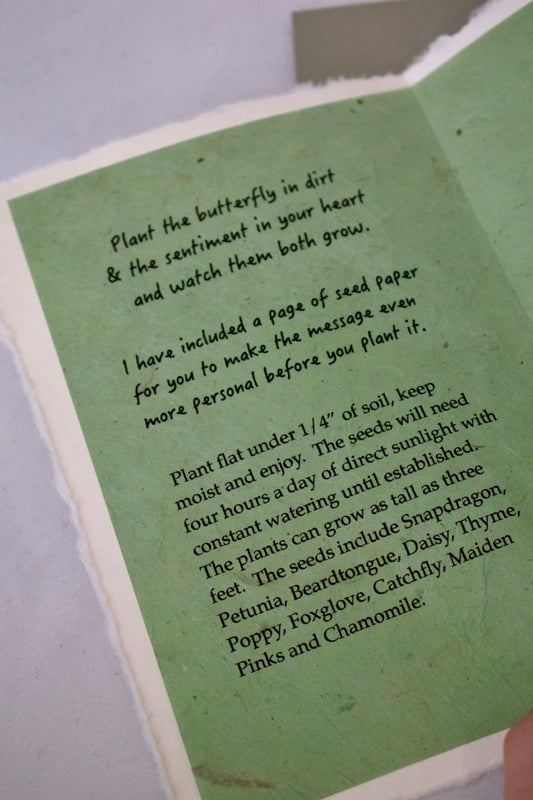 Plant the butterfly in dirt
& the sentiment in your heart
and watch them both grow.
I have included a page of seed paper
for you to make the message even
more personal before you plant it.
Plant flat under 1/4" of soil, keep
moist and enjoy. The seeds will need
four hours a day of direct sunlight with
constant watering until established.
The plants can grow as tall as three
feet. The seeds include Snapdragon,
Petunia, Beardtongue, Daisy, Thyme,
Poppy, Foxglove, Catchfly, Maiden
Pinks and Chamomile.